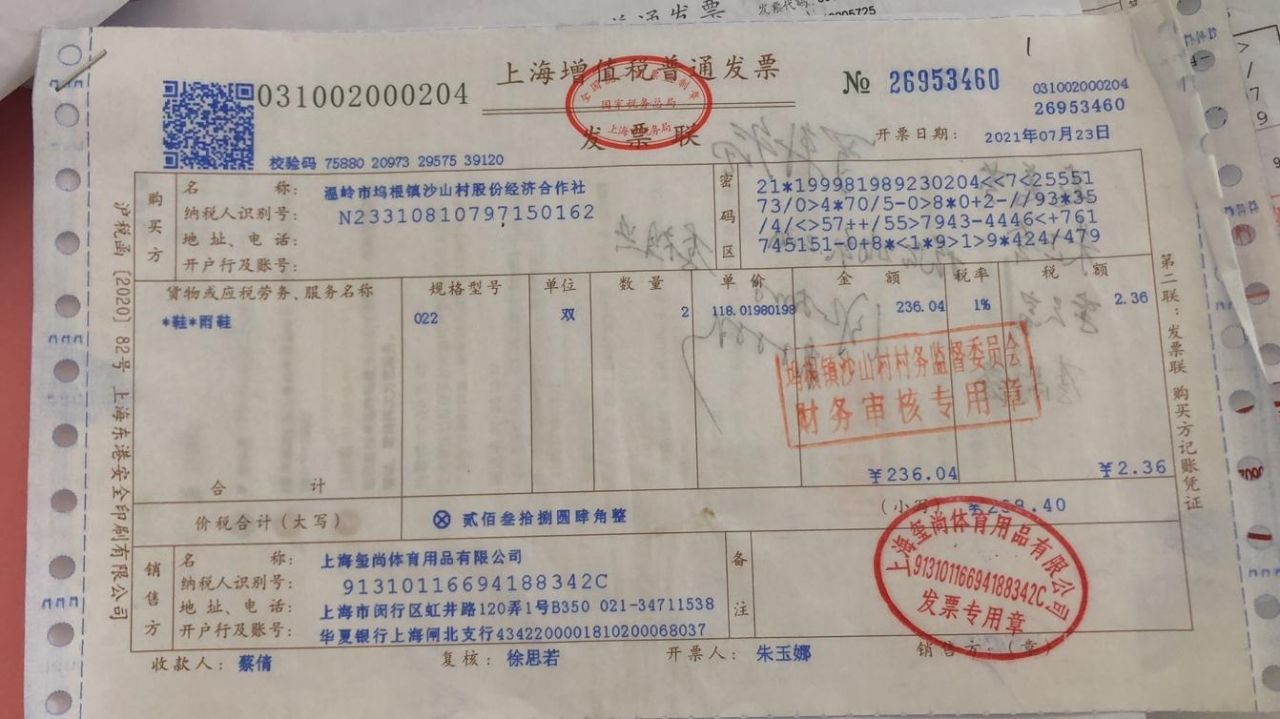 上海增值税普通发票
发票联
全国统一发票监制章
国家税务总局
上海市税务局
031002000204
№ 26953460
031002000204
26953460
校验码 75880 20973 29575 39120
开票日期: 2021年07月23日
购买方
名 称: 温岭市坞根镇沙山村股份经济合作社
纳税人识别号: N2331081079715016​2
地址、电话:
开户行及账号:
密码区
21*199981989230204<<7<25551
73/0>4*70/5-0>8*0+2-//93*35
/4/<>57++/55>7943-4446<+761
745151-0+8*<1*9>1>9*424/479
货物或应税劳务、服务名称 规格型号 单位 数量 单价 金额 税率 税额
*鞋*雨鞋 022 双 2 118.01980198 236.04 1% 2.36
坞根镇沙山村村务监督委员会
财务审核专用章
合计 ¥236.04 ¥2.36
价税合计(大写) ⊗ 贰佰叁拾捌圆肆角整 (小写) ¥238.40
销售方
名 称: 上海玺尚体育用品有限公司
纳税人识别号: 91310116694188342C
地址、电话: 上海市闵行区虹井路120弄1号B350 021-34711538
开户行及账号: 华夏银行上海闸北支行4342200001810200068037
备注
上海玺尚体育用品有限公司
91310116694188342C
发票专用章
收款人: 蔡倩 复核: 徐思若 开票人: 朱玉娜 销售方:(章)
沪税函〔2020〕82号 上海东港安全印刷有限公司
第二联:发票联 购买方记账凭证